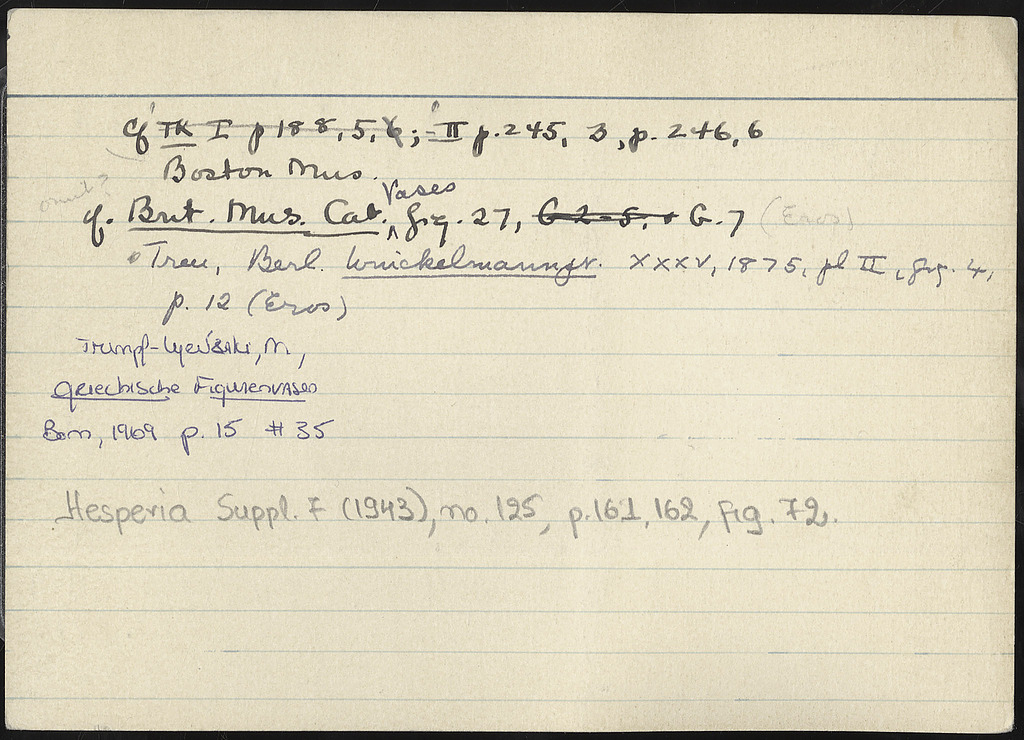 cf TK I p 188, 5, 6; II p. 245, 3, p. 246, 6
Boston Mus.
omit?
Vases
cf. Brit. Mus. Cat. fig. 27, G 2-5, G. 7 (Eros)
Treu, Berl. Winckelmannspr. XXXV, 1875, pl II, fig. 4,
p. 12 (Eros)
Trumpf-Lyritzaki, M,
Griechische Figurenvasen
Bonn, 1969 p. 15 # 35
Hesperia Suppl. 7 (1943), no. 125, p. 161, 162, fig. 72.